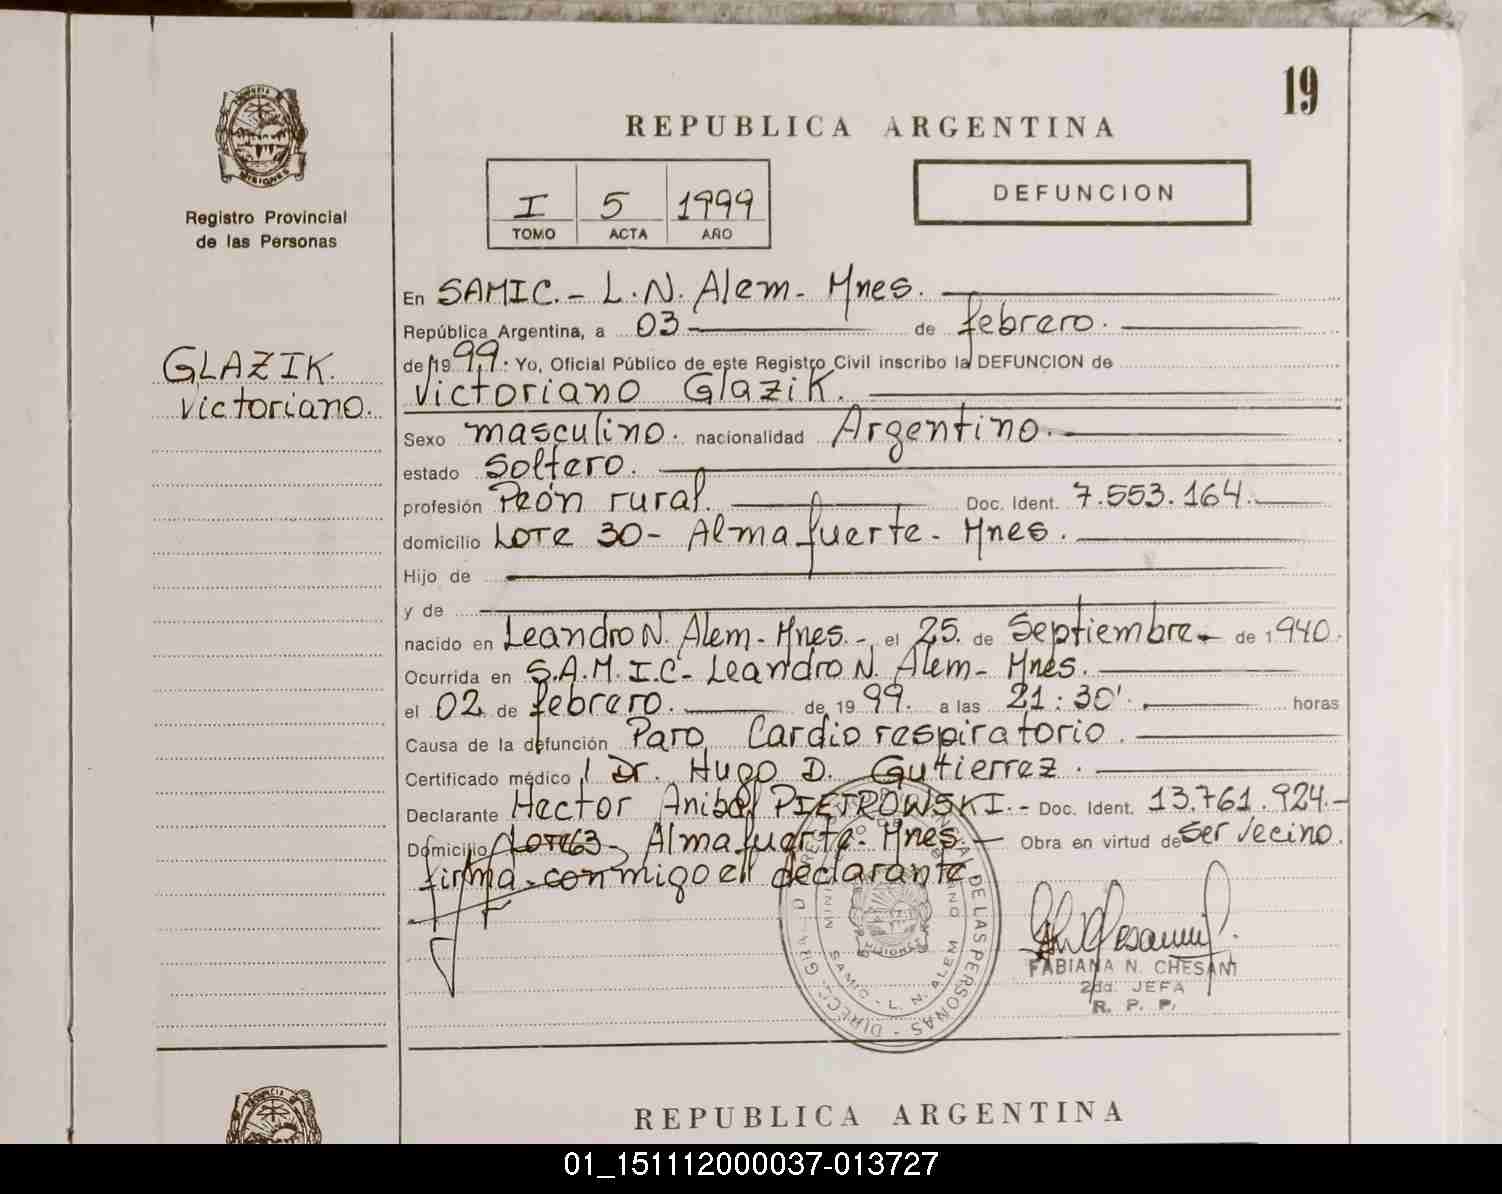 19
PROVINCIA DE
MISIONES
Registro Provincial
de las Personas
GLAZIK.
Victoriano.
REPUBLICA ARGENTINA
I 5 1999
TOMO ACTA AÑO
DEFUNCION
En SAMIC.- L.N. Alem- Mnes.
República Argentina, a 03 de febrero.
de 1999. Yo, Oficial Público de este Registro Civil inscribo la DEFUNCION de
Victoriano Glazik.
Sexo masculino. nacionalidad Argentino.
estado Soltero.
profesión Peón rural. Doc. Ident. 7.553.164.
domicilio Lote 30- Almafuerte- Mnes.
Hijo de
y de
nacido en Leandro N. Alem- Mnes.- el 25. de Septiembre. de 1940.
Ocurrida en S.A.M.I.C- Leandro N. Alem- Mnes.
el 02 de febrero. de 1999. a las 21:30'. horas
Causa de la defunción Paro Cardio respiratorio.
Certificado médico Dr. Hugo D. Gutierrez.
Declarante Hector Anibal PIETROWSKI.- Doc. Ident. 13.761.924.-
Domicilio Lote 63- Almafuerte- Mnes- Obra en virtud de Ser Vecino.
firma conmigo el declarante
DE LAS PERSONAS
SAMIC - L. N. ALEM
MISIONES
FABIANA N. CHESANI
2da. JEFA
R. P. P.
REPUBLICA ARGENTINA
01_151112000037-013727